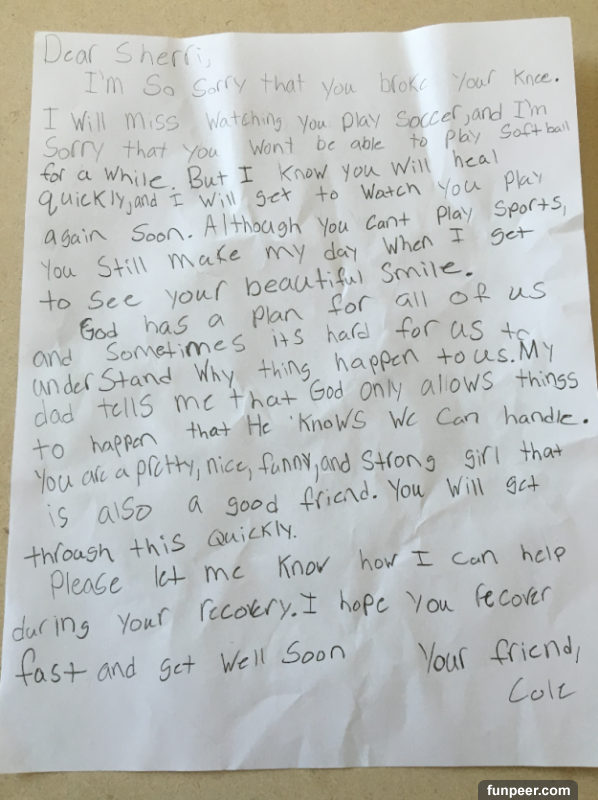 Dear Sherri,
I'm So Sorry that you broke your knee.
I Will miss watching you play Soccer, and I'm
Sorry that you wont be able to play Softball
for a while. But I know you will heal
quickly, and I will get to watch you play
again Soon. Although you cant play Sports,
you Still make my day when I get
to see your beautiful Smile.
God has a plan for all of us
and Sometimes its hard for us to
underStand Why thing happen to us. My
dad tells me that God only allows things
to happen that He knows we can handle.
You are a pretty, nice, funny, and Strong girl that
is also a good friend. You Will get
through this quickly.
Please let me know how I can help
during your recovery. I hope you recover
fast and get Well Soon Your friend,
Cole
funpeer.com